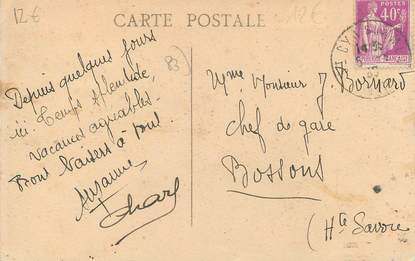 12€
12€
CARTE POSTALE
POSTES
40c
Depuis quelques jours
ici. Temps splendide,
vacances agréables.
Bons baisers à tous.
Suzanne
Charl
83
Mme Monsieur J. Bornard
Chef de gare
Bossons
(Hte Savoie